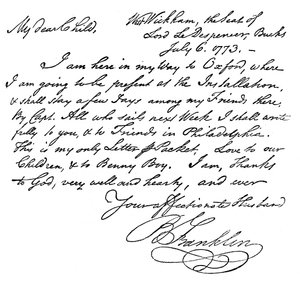 West Wickham, the Seat of
Lord Le Despencer, Bucks
July 6. 1773.—
My dear Child,
I am here in my Way to Oxford, where
I am going to be present at the Installation,
& shall stay a few Days among my Friends there.
By Capt. All who sails next Week I shall write
fully to you, & to Friends in Philadelphia.
This is my only Letter p Packet. Love to our
Children, & to Benny Boy. I am, Thanks
to God, very well and hearty, and ever
Your affectionate Husband
B Franklin